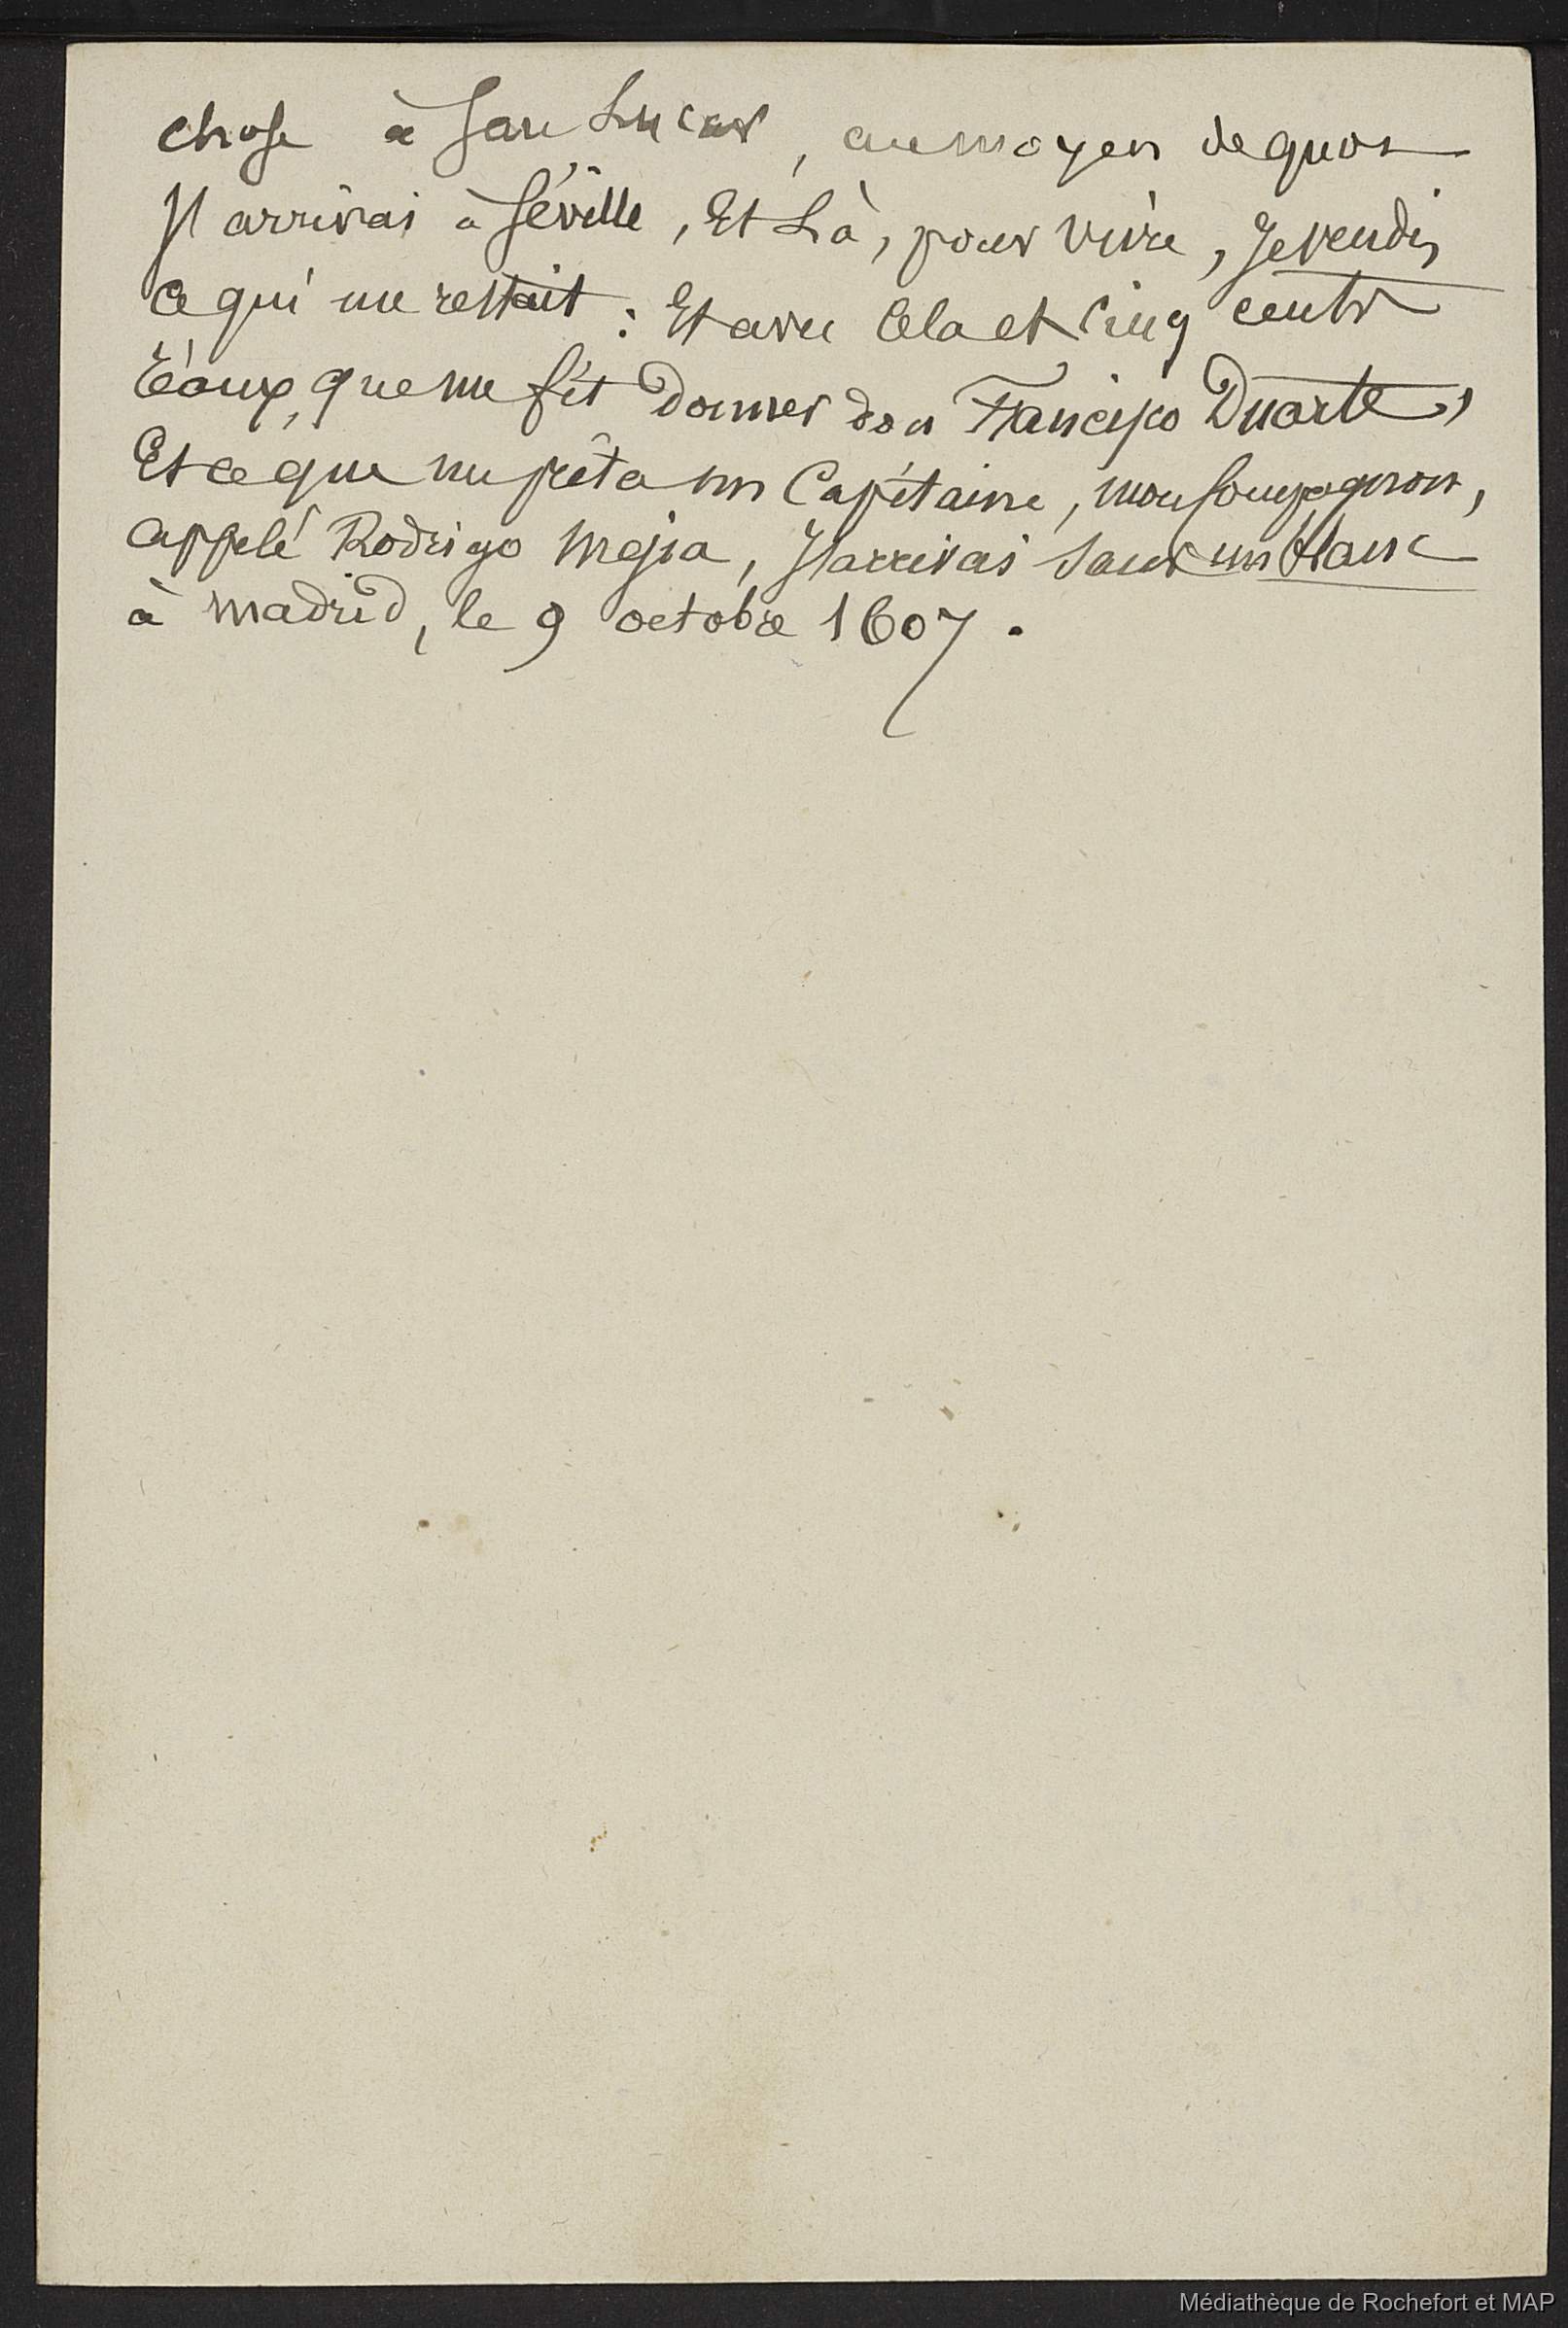 chose à San Lucar, au moyen de quoi
J'arrivai à Séville, Et Là, pour vivre, Je vendis
ce qui me restait : Et avec Cela et Cinq cents
réaux, que me fit donner don Francisco Duarte,
Et ce que me prêta un Capitaine, mon Compagnon,
appelé Rodrigo Mejia, J'arrivai sans un blanc
à Madrid, le 9 octobre 1607.
Médiathèque de Rochefort et MAP